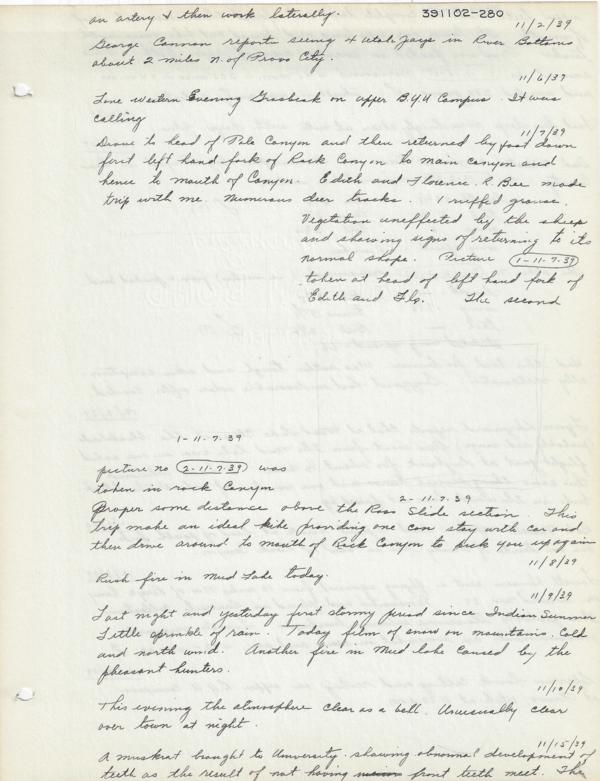 an artery & then work laterally.
391102-280
11/2/39
George Cannon reports seeing 4 Utah Jays in River Bottoms
about 2 miles n. of Provo City.
11/6/39
Lone Western Evening Grosbeak on upper B.Y.U Campus. It was
calling
11/7/39
Drove to head of Pole Canyon and then returned by foot down
first left hand fork of Rock Canyon to main canyon and
hence to mouth of Canyon. Edith and Florence R. Bee made
trip with me. Numerous deer tracks. 1 ruffed grouse.
Vegetation uneffected by the sheep
and showing signs of returning to its
normal shape. Picture 1-11-7-39
taken at head of left hand fork of
Edith and Flo. The second
1-11-7-39
picture no 2-11-7-39 was
taken in rock Canyon
2-11-7-39
proper some distance above the Ross Slide section. This
trip make an ideal hike providing one can stay with car and
then drive around to mouth of Rock Canyon to pick you up again
11/8/39
Rush fire in Mud Lake today.
11/9/39
Last night and yesterday first stormy period since Indian Summer
Little sprinkle of rain. Today film of snow on mountains. Cold
and north wind. Another fire in Mud lake caused by the
pheasant hunters.
11/10/39
This evening the atmosphere clear as a bell. Unusually clear
over town at night.
11/15/39
A muskrat brought to University showing obnormal development of
teeth as the result of not having front teeth meet. The